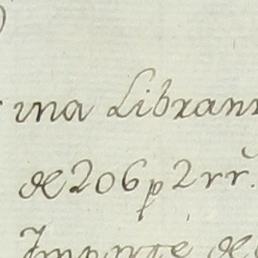 una Libran
de 206 p 2 rr.
Importe de